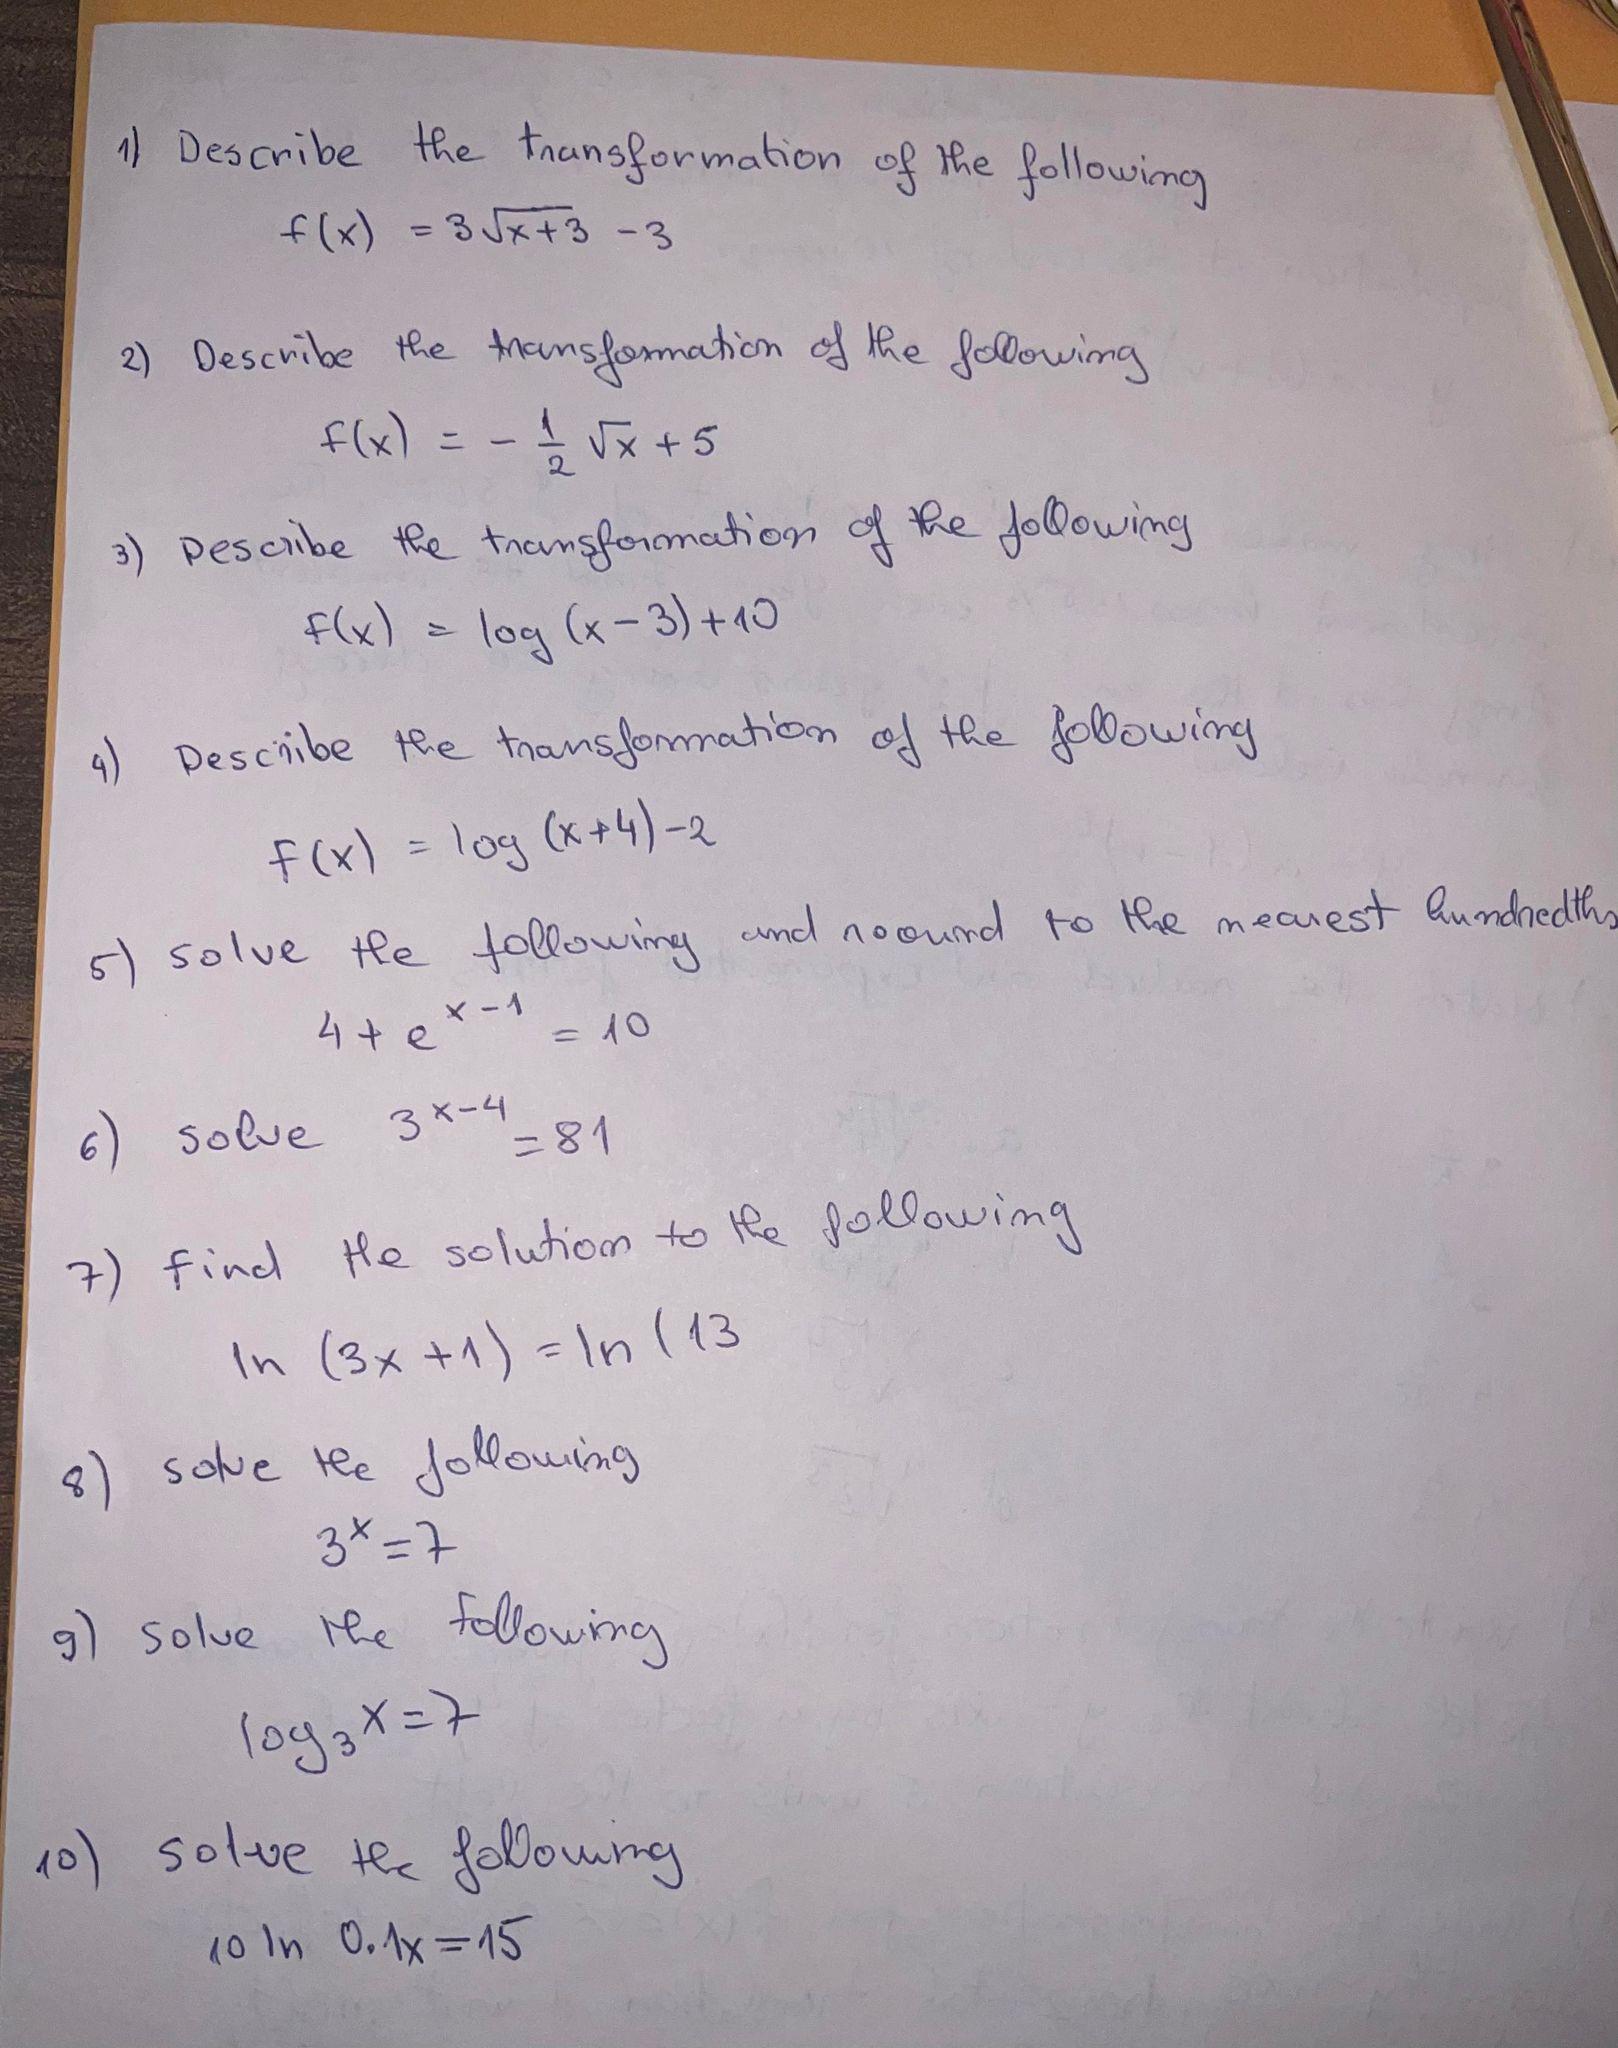 1) Describe the transformation of the following
f(x) = 3√x+3 - 3
2) Describe the transformation of the following
f(x) = - 1/2 √x + 5
3) Describe the transformation of the following
f(x) = log (x-3)+10
4) Describe the transformation of the following
f(x) = log (x+4)-2
5) solve the following and roound to the nearest hundredths
4 + e^x-1 = 10
6) solve 3^x-4 = 81
7) find the solution to the following
ln (3x+1) = ln (13
8) solve the following
3^x = 7
9) solve the following
log₃x = 7
10) solve the following
10 ln 0.1x = 15